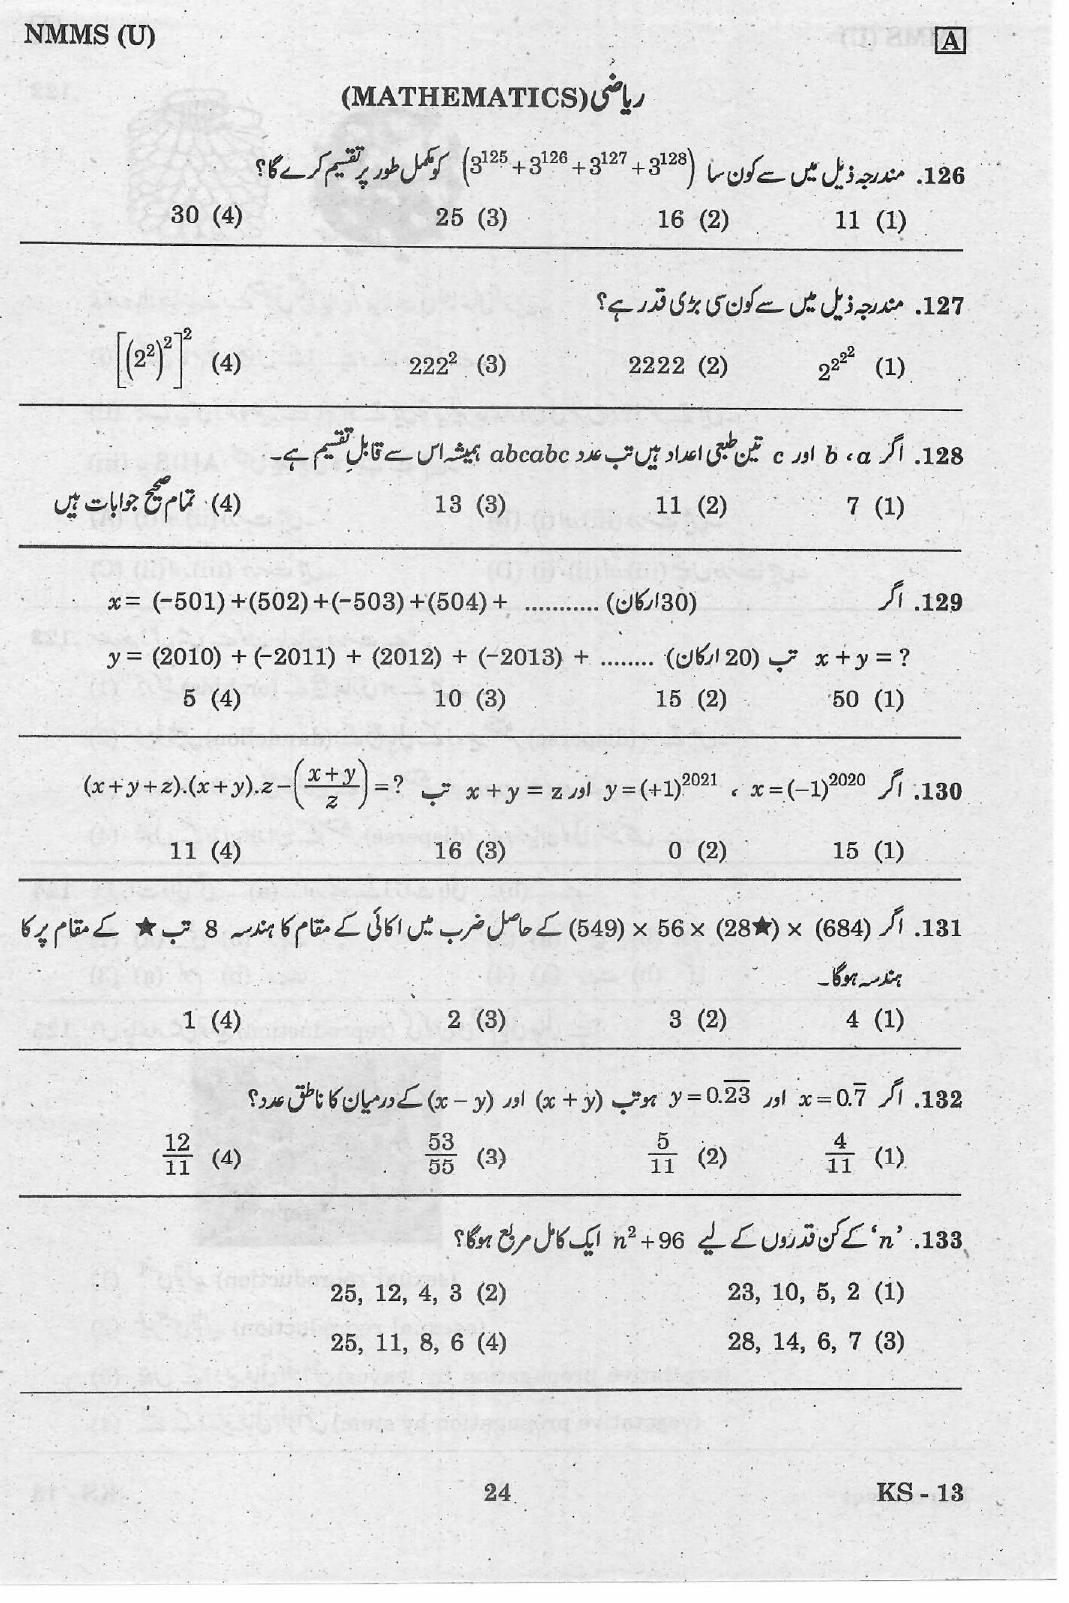 NMMS (U)
A
ریاضی (MATHEMATICS)
126. مندرجہ ذیل میں سے کون سا (3¹²⁵ + 3¹²⁶ + 3¹²⁷ + 3¹²⁸) کو مکمل طور پر تقسیم کرے گا؟
(1) 11 (2) 16 (3) 25 (4) 30
127. مندرجہ ذیل میں سے کون سی بڑی قدر ہے؟
(1) 2^2^2^2 (2) 2222 (3) 222² (4) [(2²)²]²
128. اگر b ، a اور c تین طبعی اعداد ہیں تب عدد abcabc ہمیشہ اس سے قابلِ تقسیم ہے۔
(1) 7 (2) 11 (3) 13 (4) تمام صحیح جوابات ہیں
129. اگر x = (−501) + (502) + (−503) + (504) + ........... (30 ارکان)
y = (2010) + (−2011) + (2012) + (−2013) + ........ (20 ارکان) تب x + y = ?
(1) 50 (2) 15 (3) 10 (4) 5
130. اگر x = (−1)²⁰²⁰ ، y = (+1)²⁰²¹ اور x + y = z تب (x + y + z).(x + y).z − ((x + y)/z) = ?
(1) 15 (2) 0 (3) 16 (4) 11
131. اگر (684) × (28★) × 56 × (549) کے حاصل ضرب میں اکائی کے مقام کا ہندسہ 8 تب ★ کے مقام پر کا
ہندسہ ہوگا۔
(1) 4 (2) 3 (3) 2 (4) 1
132. اگر x = 0.7̅ اور y = 0.2̅3̅ ہو تب (x + y) اور (x − y) کے درمیان کا ناطق عدد؟
(1) 4/11 (2) 5/11 (3) 53/55 (4) 12/11
133. ‘n’ کے کن قدروں کے لیے n² + 96 ایک کامل مربع ہوگا؟
(1) 23, 10, 5, 2 (2) 25, 12, 4, 3
(3) 28, 14, 6, 7 (4) 25, 11, 8, 6
24
KS - 13